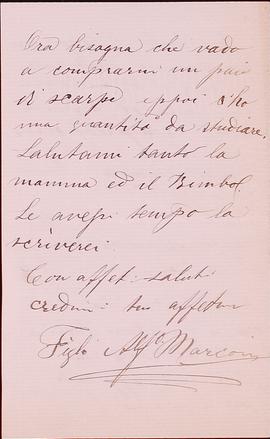 Ora bisogna che vado
a comprarmi un paio
di scarpe eppoi d'ho
una quantità da studiare.
Salutami tanto la
mamma ed il Bimbo.
Se avessi tempo la
scriverei
Con affet: saluti
credimi: tuo
Figlio Alf° Marconi